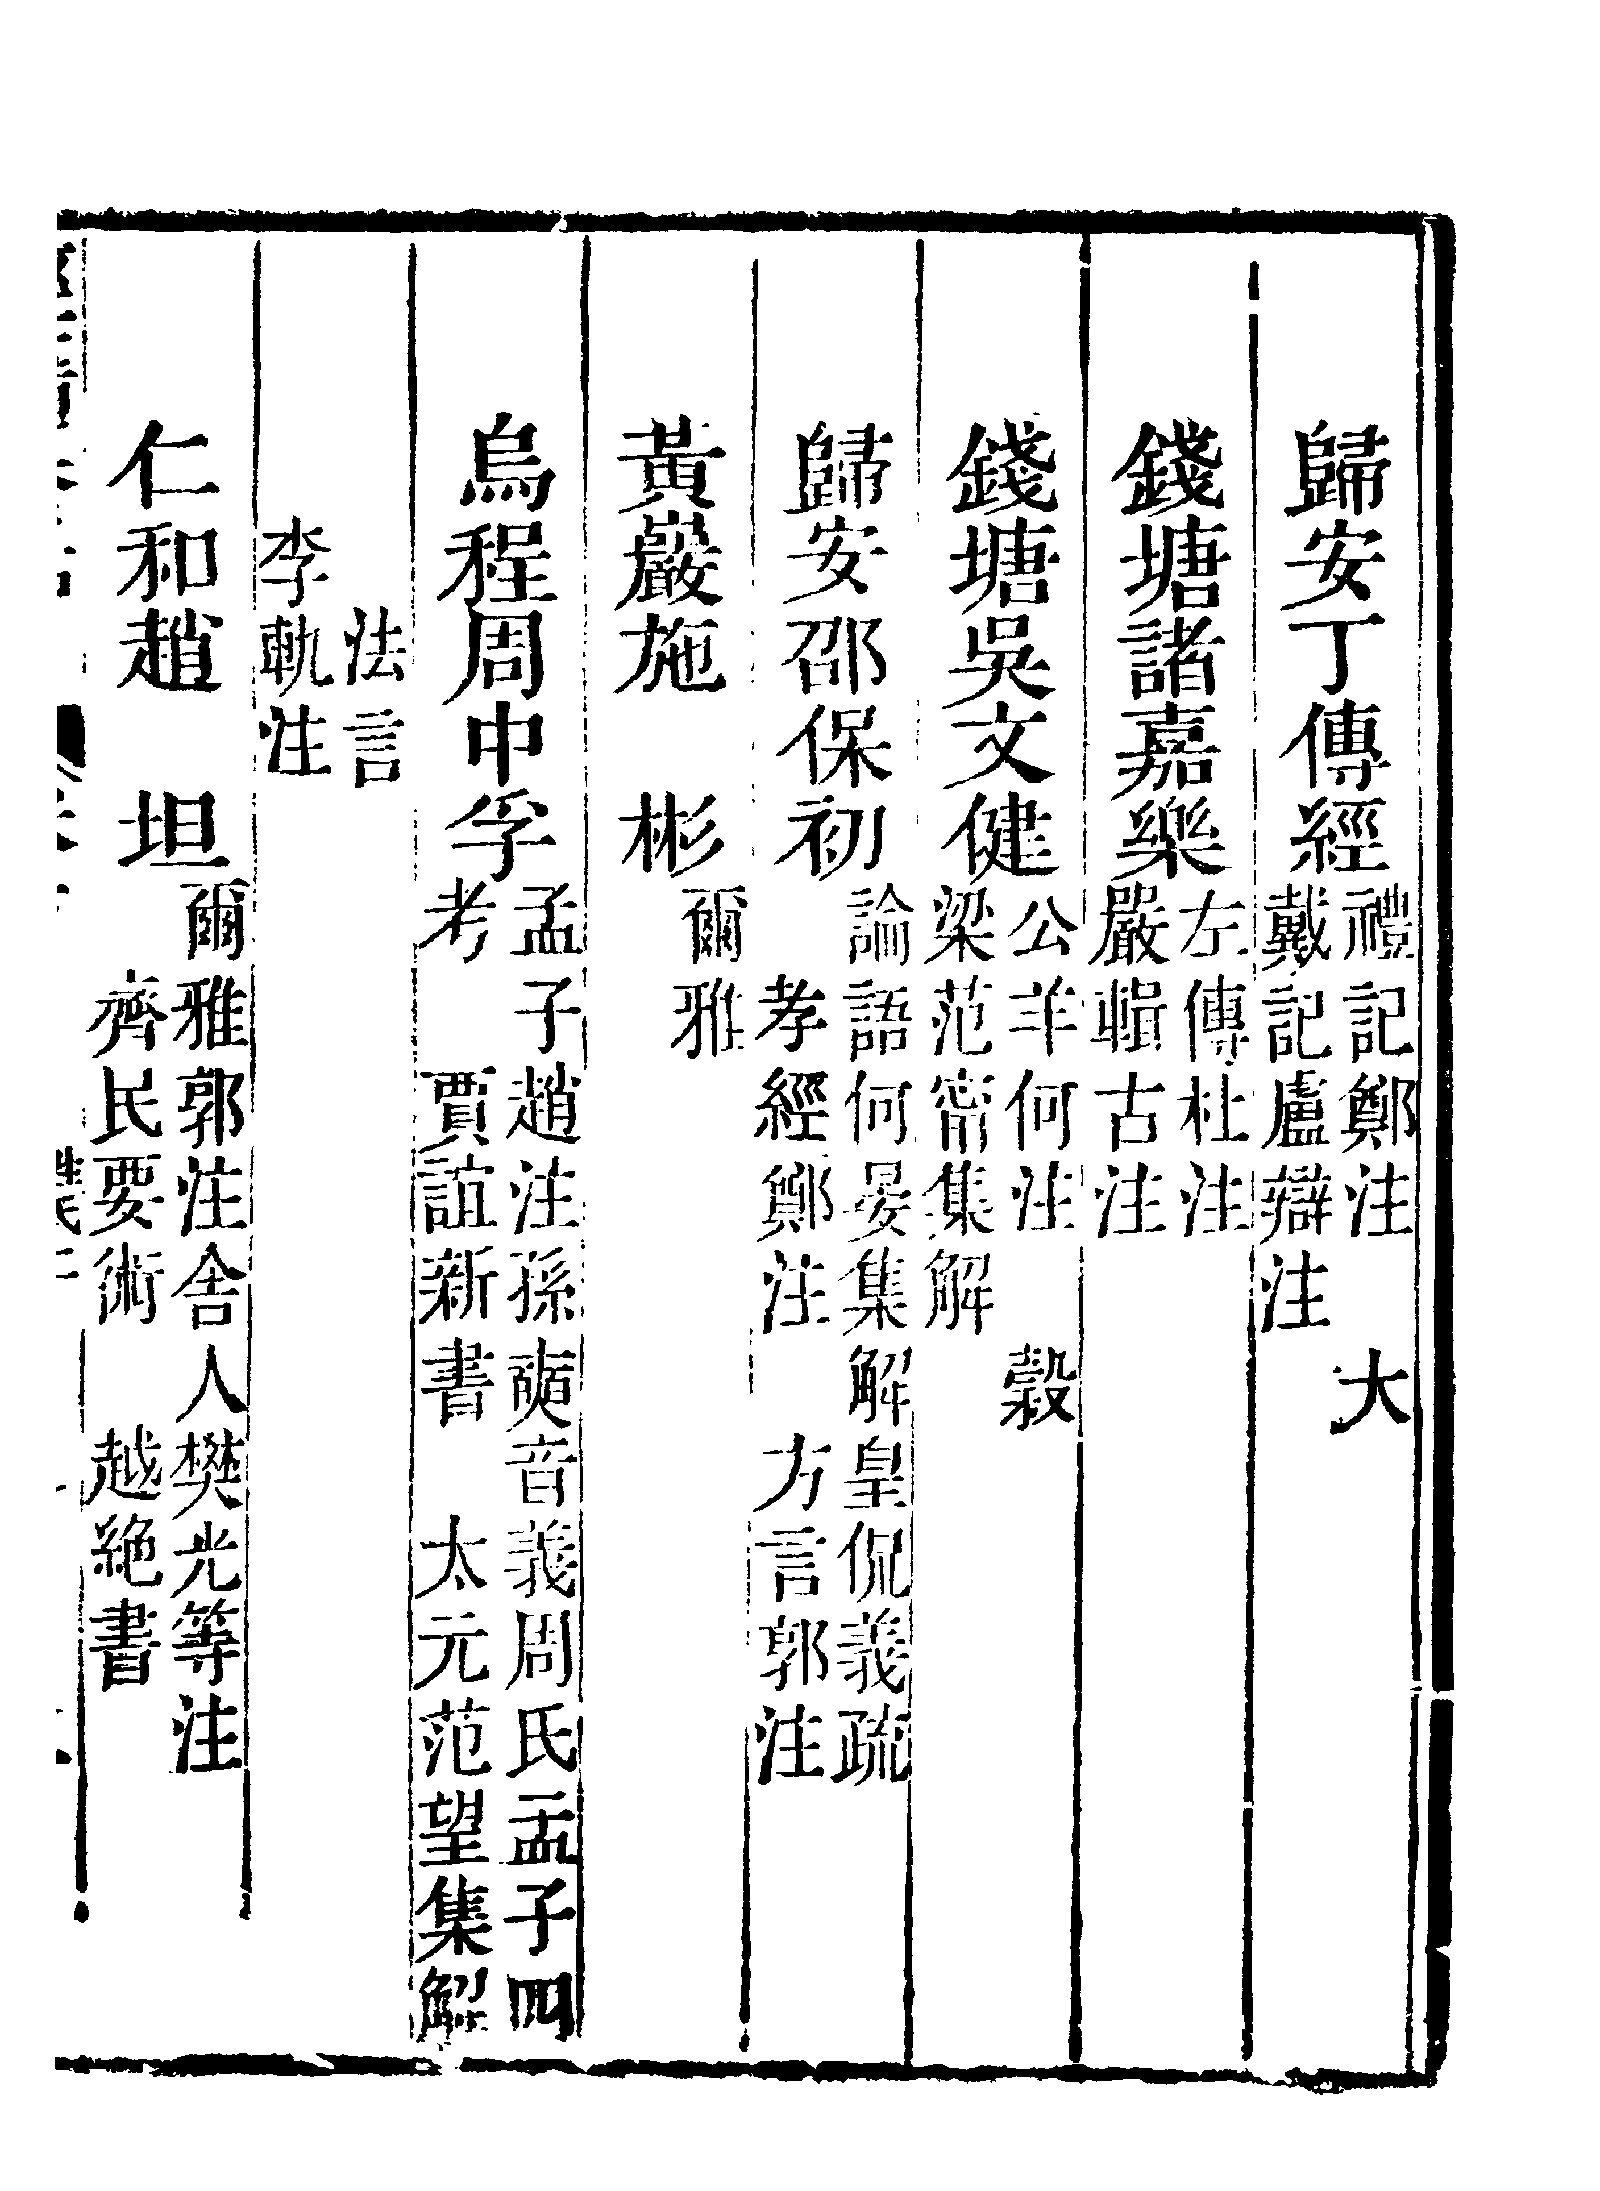 歸安丁傳經禮記鄭注　大
戴記盧辯注
錢塘諸嘉樂左傳杜注
嚴輯古注
錢塘吳文健公羊何注　穀
梁范甯集解
歸安邵保初論語何晏集解皇侃義疏
孝經鄭注　方言郭注
黃巖施　彬爾雅
烏程周中孚孟子趙注孫奭音義周氏孟子四
考　賈誼新書　太元范望集解
法言
李軌注
仁和趙　坦爾雅郭注舍人樊光等注
齊民要術　越絶書